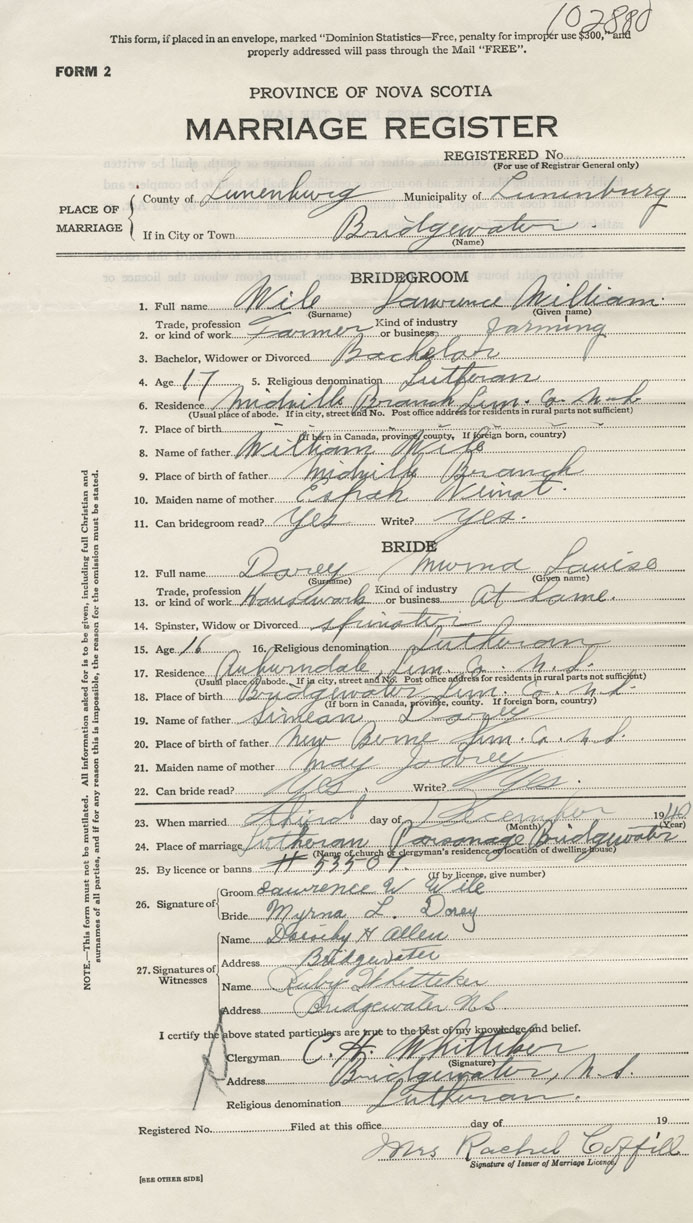 102880
This form, if placed in an envelope, marked "Dominion Statistics—Free, penalty for improper use $300," and
properly addressed will pass through the Mail "FREE".
FORM 2
PROVINCE OF NOVA SCOTIA
MARRIAGE REGISTER
REGISTERED No.
(For use of Registrar General only)
PLACE OF MARRIAGE
County of Lunenburg Municipality of Lunenburg
If in City or Town Bridgewater
(Name)
BRIDEGROOM
1. Full name Wile Lawrence William
(Surname) (Given name)
Trade, profession Kind of industry
2. or kind of work Farmer or business farming
3. Bachelor, Widower or Divorced Bachelor
4. Age 17 5. Religious denomination Lutheran
6. Residence Midville Branch Lun. Co. N.S.
(Usual place of abode. If in city, street and No. Post office address for residents in rural parts not sufficient)
7. Place of birth
(If born in Canada, province, county, If foreign born, country)
8. Name of father William Wile
9. Place of birth of father Midville Branch
10. Maiden name of mother
11. Can bridegroom read? Yes Write? Yes.
BRIDE
12. Full name Dorey Louise
(Surname) (Given name)
Trade, profession Kind of industry
13. or kind of work Housework or business At home.
14. Spinster, Widow or Divorced Spinster
15. Age 16 16. Religious denomination Lutheran
17. Residence Auburndale, Lun. Co. N.S.
(Usual place of abode. If in city, street and No. Post office address for residents in rural parts not sufficient)
18. Place of birth Bridgewater Lun. Co. N.S.
(If born in Canada, province, county. If foreign born, country)
19. Name of father Simeon Dorey
20. Place of birth of father New Berne Lun. Co. N.S.
21. Maiden name of mother May
22. Can bride read? Yes Write? Yes.
23. When married third day of December 1940
(Month) (Year)
24. Place of marriage Lutheran Parsonage Bridgewater
(Name of church or clergyman's residence or location of dwelling-house)
25. By licence or banns # 53507
(If by licence, give number)
26. Signature of
Groom Lawrence W Wile
Bride Myrna L. Dorey
27. Signatures of Witnesses
Name Dorothy H Allen
Address Bridgewater
Name Ruby Whittiker
Address Bridgewater N S
I certify the above stated particulars are true to the best of my knowledge and belief.
Clergyman C. H. Whittiker
(Signature)
Address Bridgewater, N.S.
Religious denomination Lutheran.
Registered No. Filed at this office day of 19
Mrs Rachel Coffill
Signature of Issuer of Marriage Licence
[SEE OTHER SIDE]
NOTE.—This form must not be mutilated. All information asked for is to be given, including full Christian and
surnames of all parties, and if for any reason this is impossible, the reason for the omission must be stated.